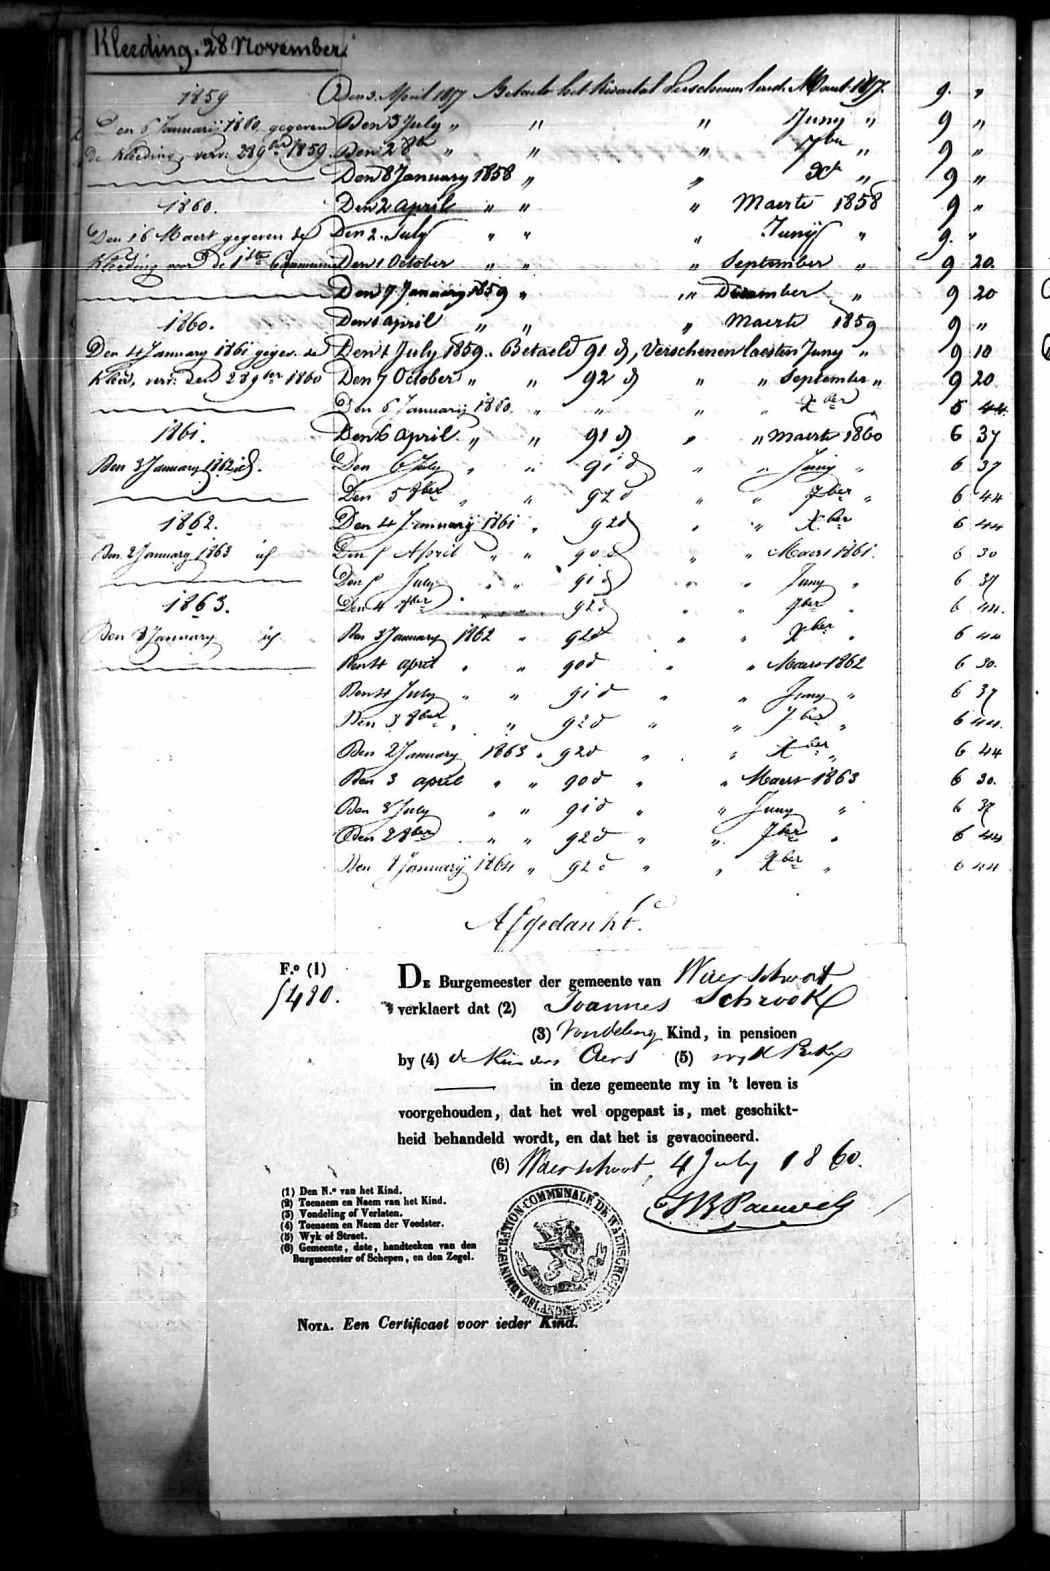 Kleeding. 28 November
1859
Den 6 Januarij 1860 gegeven
de Kleeding, verv: 28 9ber 1859
1860.
Den 16 Maert gegeven de
Kleeding voor de 1ste Communie
1860.
Den 4 January 1861 gegev. de
Kleed, verv: den 28 9ber 1860
1861.
Den 3 January 1862 id.
1862.
Den 2 January 1863 id
1863.
Den 8 January id
Den 3 April 1857 Betaelt het Kwartal Verschenen lerst. Maert 1857. 9. "
Den 3 July " " " Juny " 9 "
Den 2 8br " " " 7br " 9 "
Den 8 January 1858 " " Xbr " 9 "
Den 2 april " " " Maerte 1858 9 "
Den 2 July " " " Junij " 9. "
Den 1 October " " " September " 9 20.
Den 7 January 1859 " " " December " 9 20
Den 1 april " " " Maerte 1859 9 "
Den 1 July 1859. Betaeld 91 d, Verschenen laesten Juny " 9 10
Den 7 October " " 92 d " " September " 9 20
Den 6 Januarij 1860. " " " " Xber 5 44
Den 6 april. " " 91 d " " Maerte 1860 6 37
Den 6 July " " 91 d " " Juny " 6 37
Den 5 8ber " " 92 d " " 7ber " 6 44
Den 4 January 1861 " 92 d " " Xber 6 44
Den 5 April " " 90 d " " Maert 1861. 6 30
Den 5 July " " 91 d " " Juny " 6 37
Den 4 8ber " " 92 d " " 7ber " 6 44.
Den 3 January 1862 " 92 d " " Xber " 6 44
Den 4 april " " 90 d " " Maert 1862 6 30.
Den 4 July " " 91 d " " Juny " 6 37
Den 3 8ber " " 92 d " " 7ber " 6 44.
Den 2 January 1863 " 92 d " " Xber " 6 44
Den 3 april " " 90 d " " Maert 1863 6 30.
Den 3 July " " 91 d " " Juny " 6 37
Den 2 8ber " " 92 d " " 7ber " 6 44
Den 8 Januarij 1864 " 92 d " " Xber " 6 44
Afgedankt.
F.º (1)
5480.
DE Burgemeester der gemeente van Waerschoot
verklaert dat (2) Joannes Schrook
(3) Vondeling Kind, in pensioen
by (4) de Kinders Oers (5) wyk Beke
in deze gemeente my in 't leven is
voorgehouden, dat het wel opgepast is, met geschikt-
heid behandeld wordt, en dat het is gevaccineerd.
(6) Waerschoot, 4 July 1860.
(1) Den N.º van het Kind.
(2) Toenaem en Naem van het Kind.
(3) Vondeling of Verlaten.
(4) Toenaem en Naem der Voedster.
(5) Wyk of Straet.
(6) Gemeente, date, handteeken van den
Burgmeester of Schepen, en den Zegel.
ADMINISTRATION COMMUNALE DE WAERSCHOOT
NOTA. Een Certificaet voor ieder Kind.